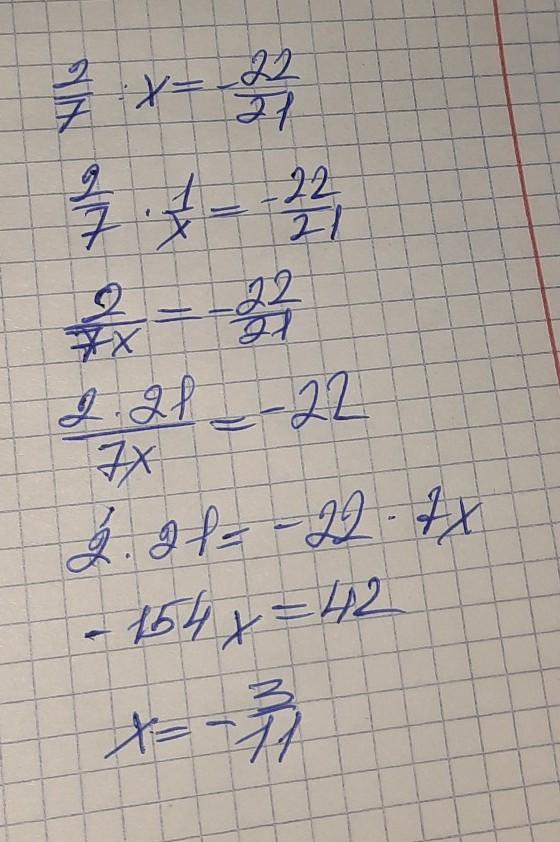 2/7 : x = -22/21
2/7 · 1/x = -22/21
2/7x = -22/21
2·21/7x = -22
2·21 = -22·7x
-154x = 42
x = -3/11